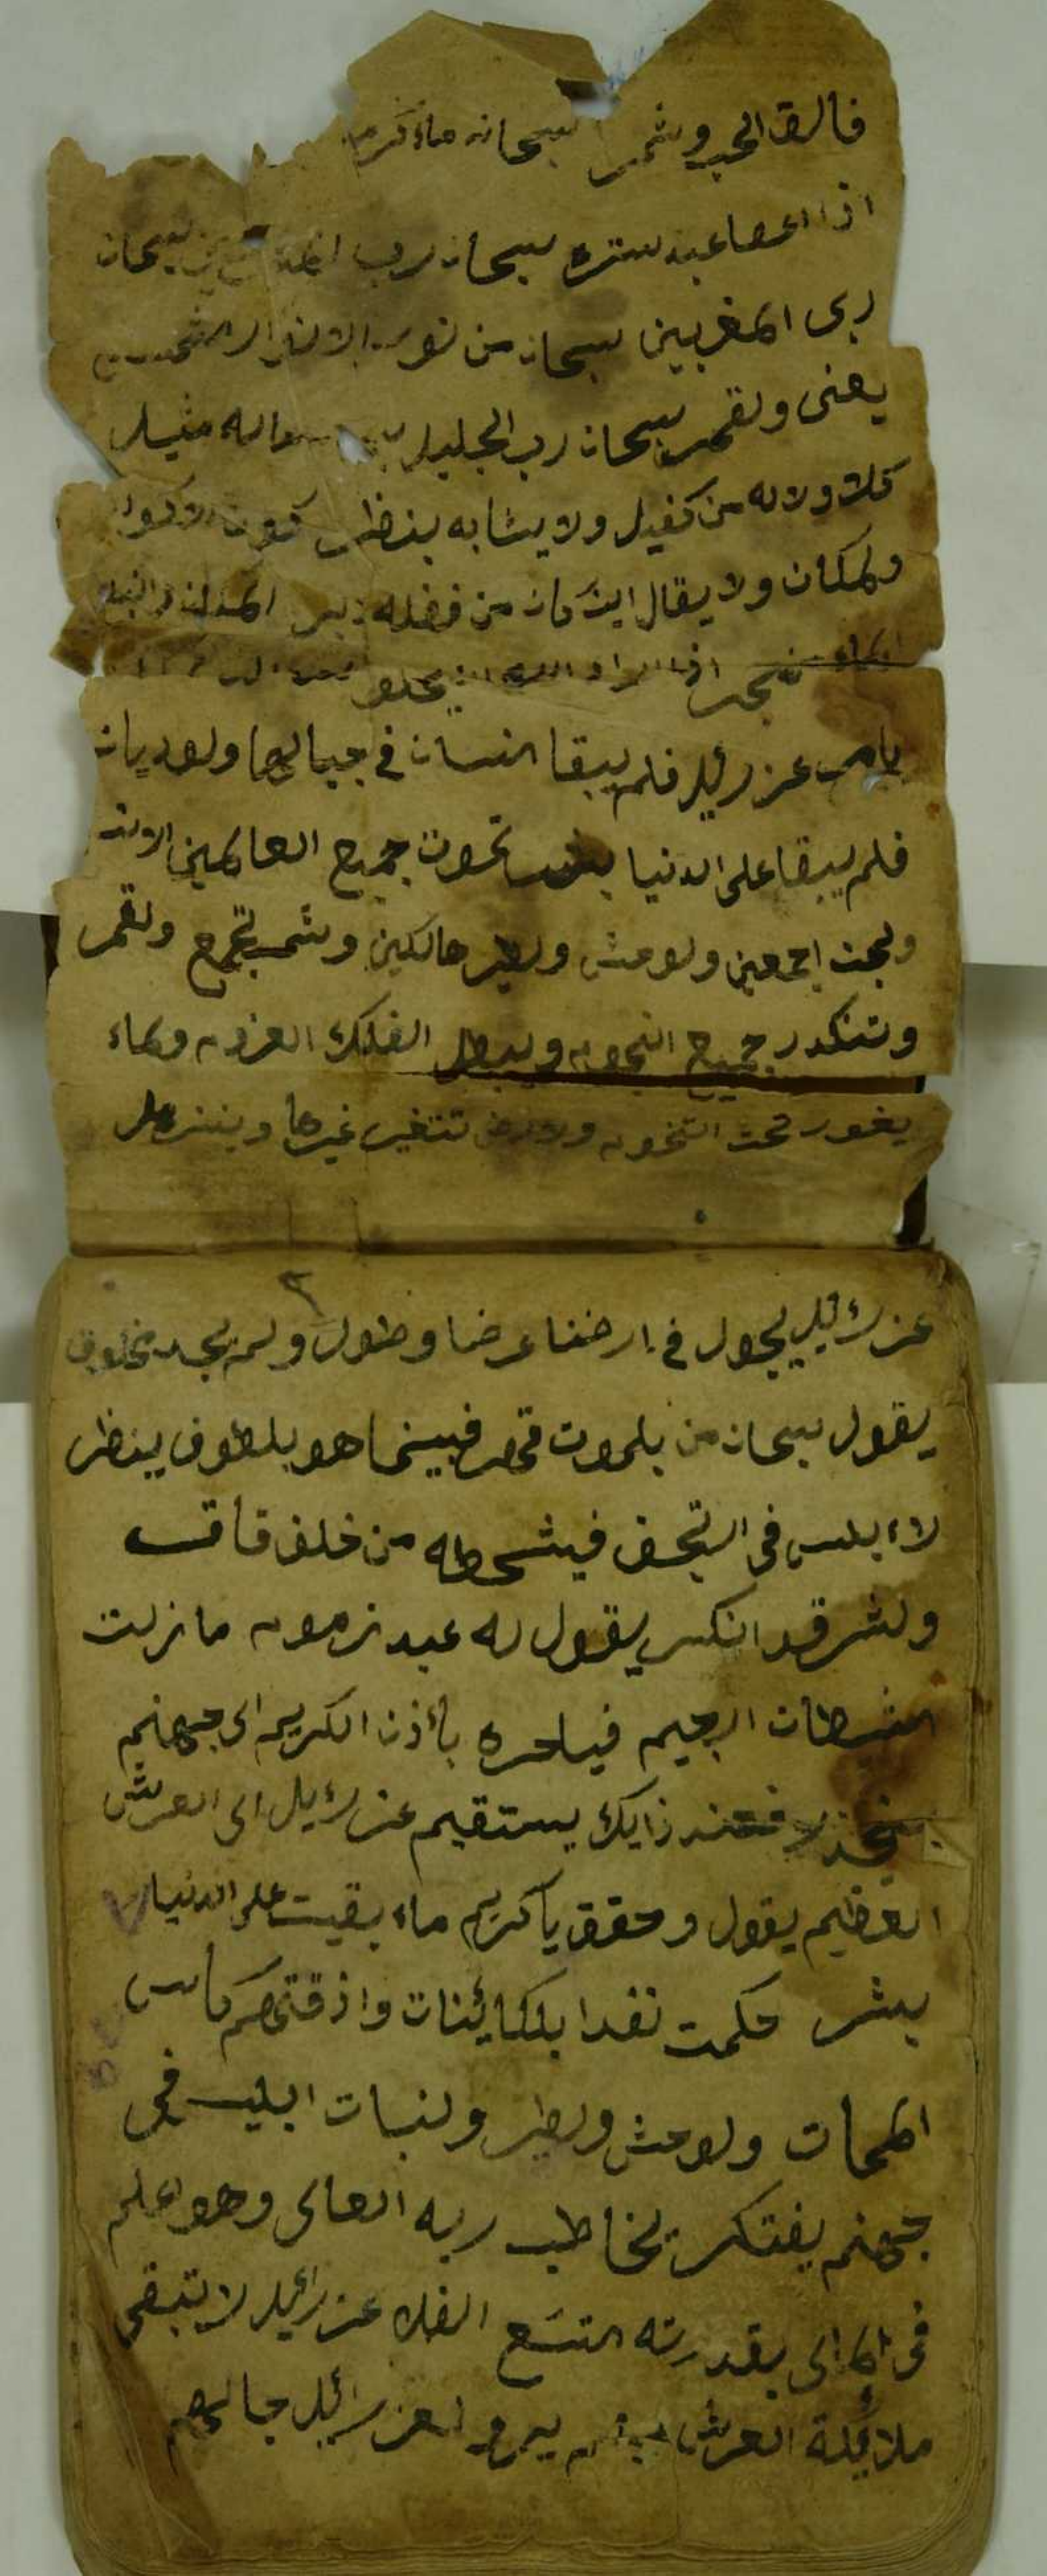 فالق الحب وثمر سبحانه ماء
اذا اعصا عبد ستره سبحان رب سبحان
ربى المغربين سبحان من نور الانوار
يغنى ولقمر سبحان رب الجليل ماله مثيل
كلا ولا له من كفيل ولا يشابه بنظر كون الاكوان
ولمكان ولا يقال اين كان من فضله
اذا اراد
بامر عزرئيل فلم يبقا انسان فى جبالها ولوديان
فلم يبقا على الدنيا تموت جميع العالمين
ولجن اجمعين ولوحش ولطير هالكين وشمس تجمع ولقمر
وتنكدر جميع النجوم ويبطل الفلك العزوم ولماء
يغور تحت التخوم ولارض تتغير غيرها وينزل
٣
عزرئيل يجول فى ارضنا عرضا وطول ولم يجد مخلوق
يقول سبحان من بلموت قهر فبينما هو بلطوف ينظر
لاء بليس فى فيشحطه من خلف قاف
ولشر قد انكسر يقول له عبد زموم ما زلت
شيطان ارجيم فياحره بأذن الكريم الى جهنيم
ينحدر فعند ذايك يستقيم عزرئيل الى العرش
العظيم يقول وحقق يا كريم ماء بقيت على الدنيا
بشر حكمت نفدا بلكايئنات واذقتهم كاس
الممات ولوحش ولطير ولنبات ابليس فى
جهنم يفتكر يخاطب ربه العالى وهو اعلم
فى الحالى بقدرته عزرائيل لا تبقى
ملائكة العرش عزرائيل جالهم